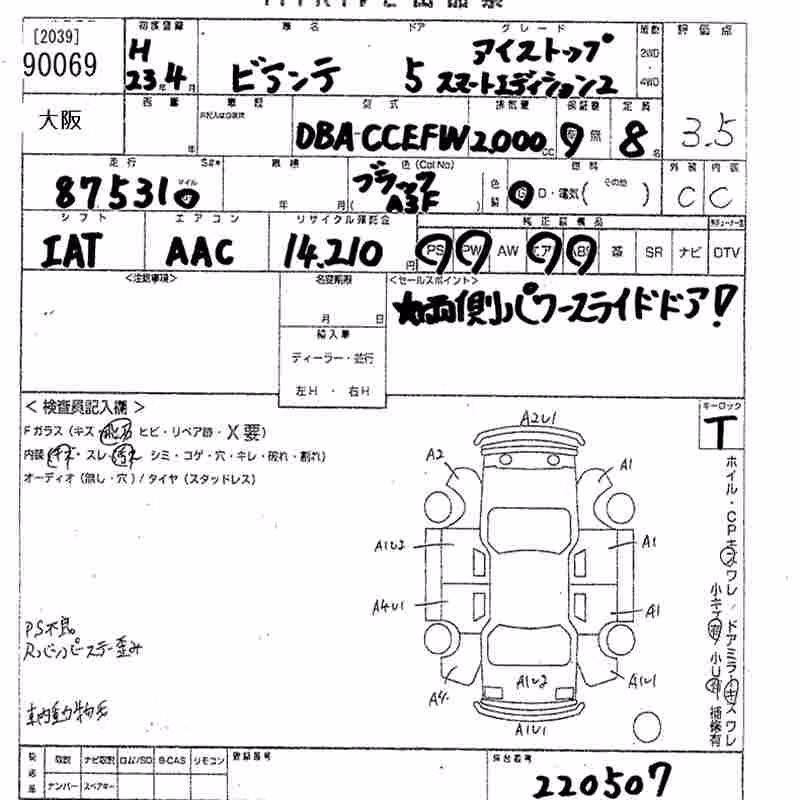 [2039]
90069
大阪
初度登録
H
23年4月
車名
ビアンテ
ドア
5
グレード
アイストップ
スマートエディション2
駆動
2WD
4WD
評価点
3.5
車歴
年
車検
型式
DBA-CCEFW
排気量
2,000cc
保証書
有 無
定員
8名
走行
S#*
87531
マイル
車検
年 月
色(Col No)
ブラック
(A3F
色替
燃料
G D・電気(その他 )
外装
C
内装
C
シフト
IAT
エアコン
AAC
リサイクル預託金
14,210円
純正装備品
PS PW AW エア ABS 革 SR ナビ DTV
<注意事項>
名変期限
月 日
輸入車
ディーラー・並行
左H ・ 右H
<セールスポイント>
★両側パワースライドドア!
<検査員記入欄>
Fガラス(キズ・飛石 ヒビ・リペア跡・X要)
内装(キズ・スレ・汚れ シミ・コゲ・穴・キレ・破れ・割れ)
オーディオ(無し・穴)/タイヤ(スタッドレス)
キーロック
T
ホイル・CPキズワレ/ドアミラーキズワレ
小キズ有 小U有 補修有
A2U1
A2
A1
A1U2
A1
A4U1
A1
A4
A1U2
A1U1
A1U1
PS不良
Rバンパーステー歪み
車内動物毛
後送品
取説
ナビ取説
ROM/SD
B-CAS
リモコン
ナンバー
スペアキー
登録番号
車台番号
220507